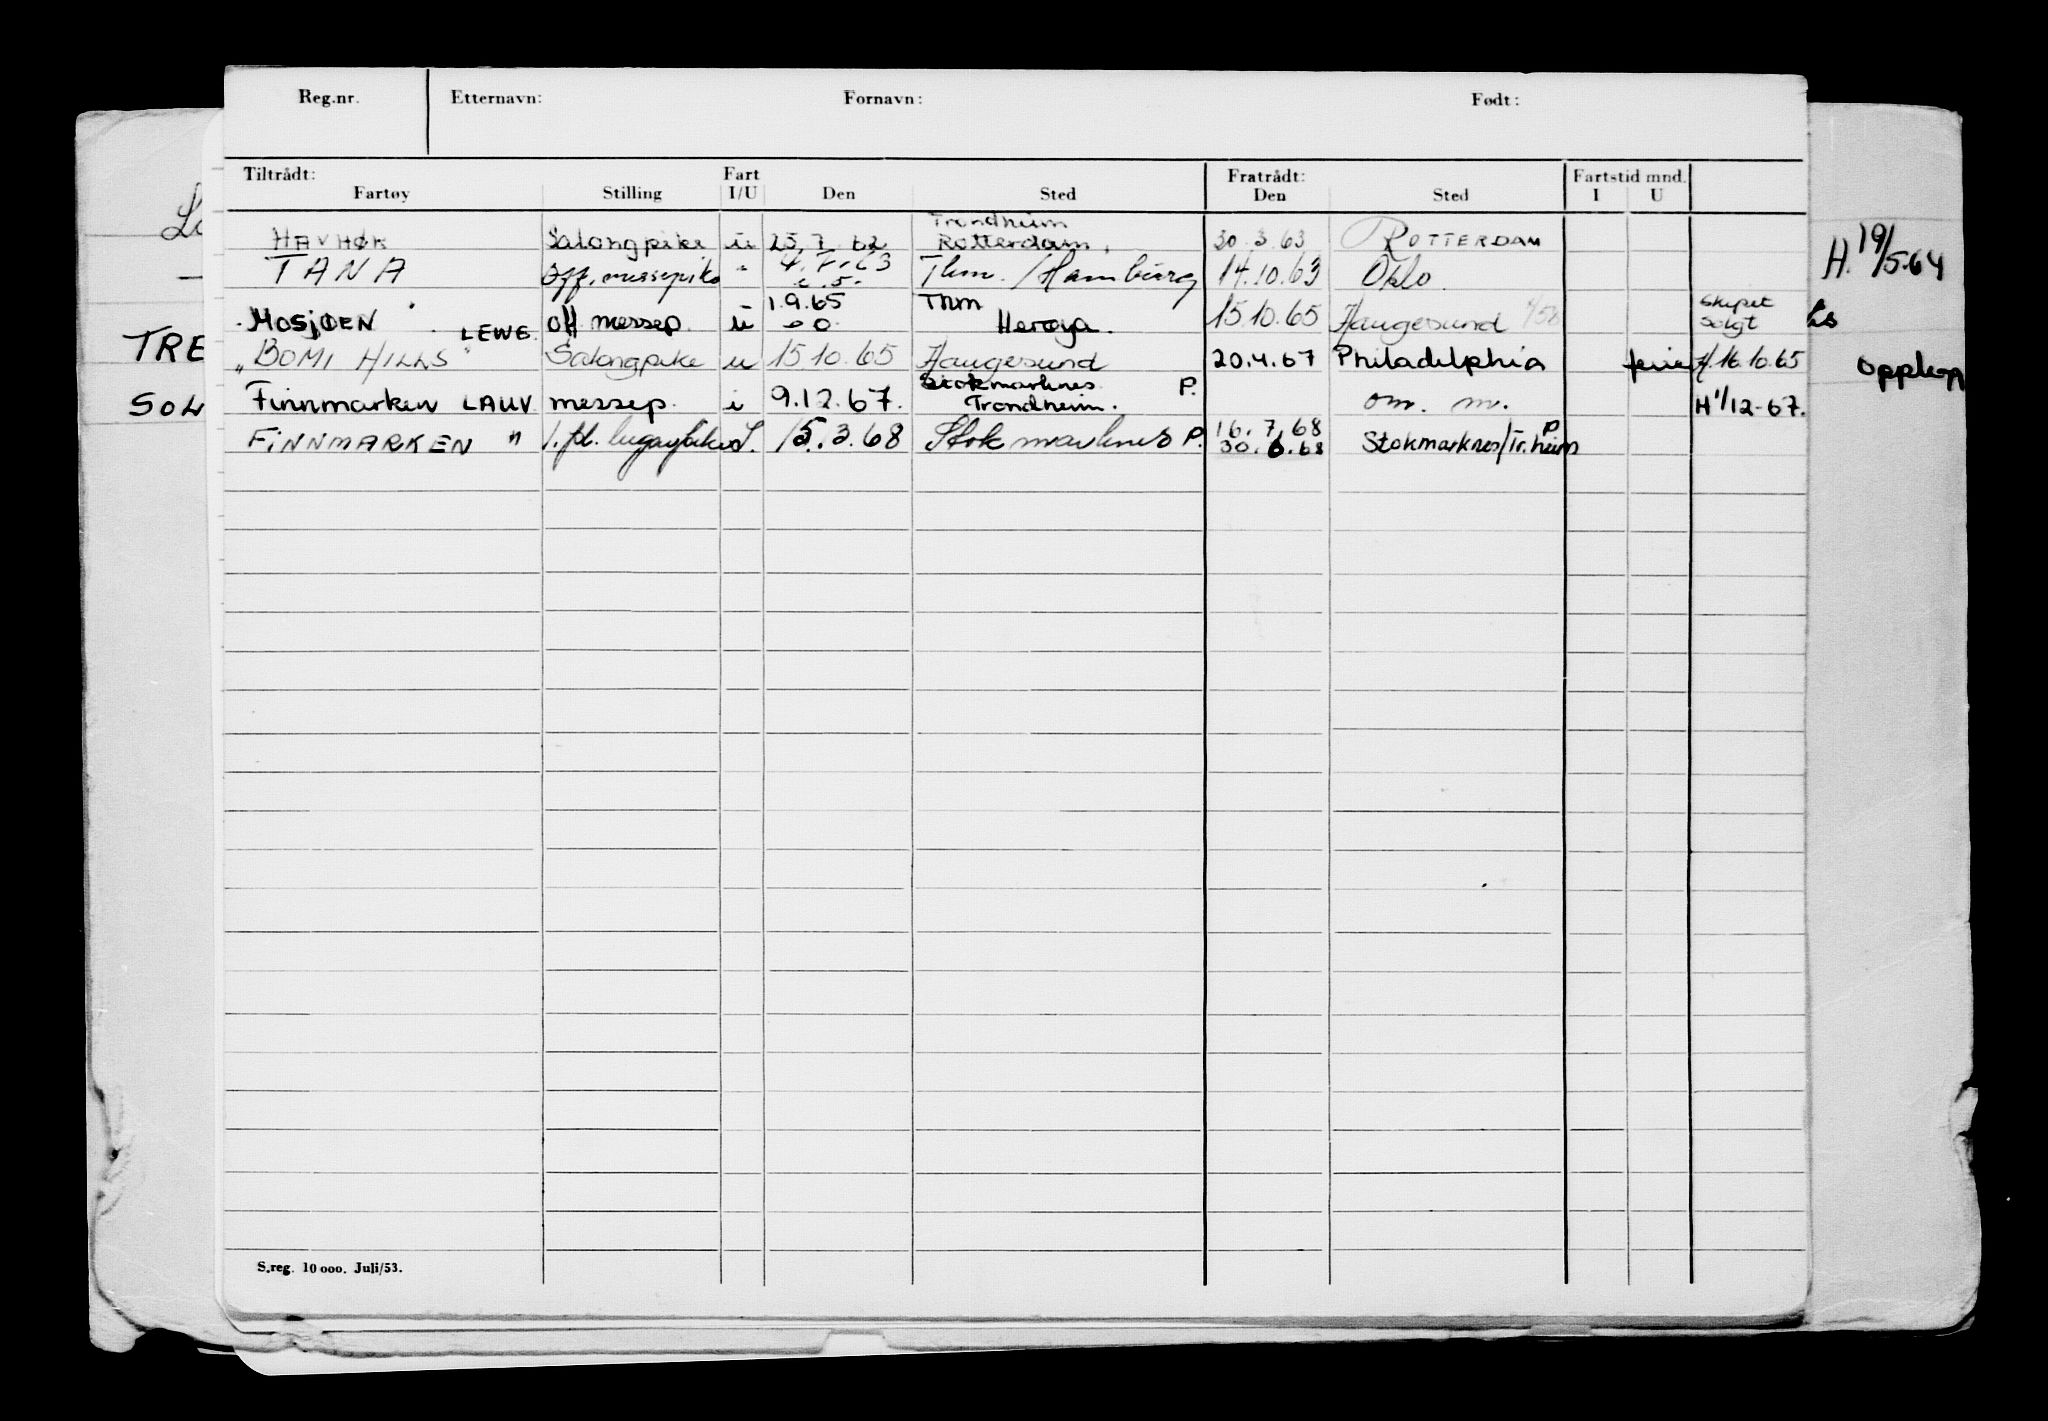 Reg.nr. Etternavn: Fornavn: Født:
Tiltrådt: Fart Fratrådt: Fartstid mnd.
Fartøy Stilling I/U Den Sted Den Sted I U
Trondheim
HAVHØK Salongpike u 25.7.62 Rotterdam. 30.3.63 ROTTERDAM
TANA Off. messepike " 4.7.63 Thm. / Hamburg 14.10.63 Oslo.
1.9.65 Thm Skipet
MOSJØEN LEWE. off messep. u Herøya. 15.10.65 Haugesund solgt
"BOMI HILLS" Salongpike u 15.10.65 Haugesund 20.4.67 Philadelphia ferie H. 16.10.65
Stokmarknes P.
Finnmarken LAUV. messep. i 9.12.67. Trondheim. om. m. H 1/12-67.
16.7.68 P
FINNMARKEN " I. 15.3.68 Stokmarknes P. 30.6.68 Stokmarknes/Tr.heim
H. 19/5.64
TRE
SOL
S.reg. 10 000. Juli/53.